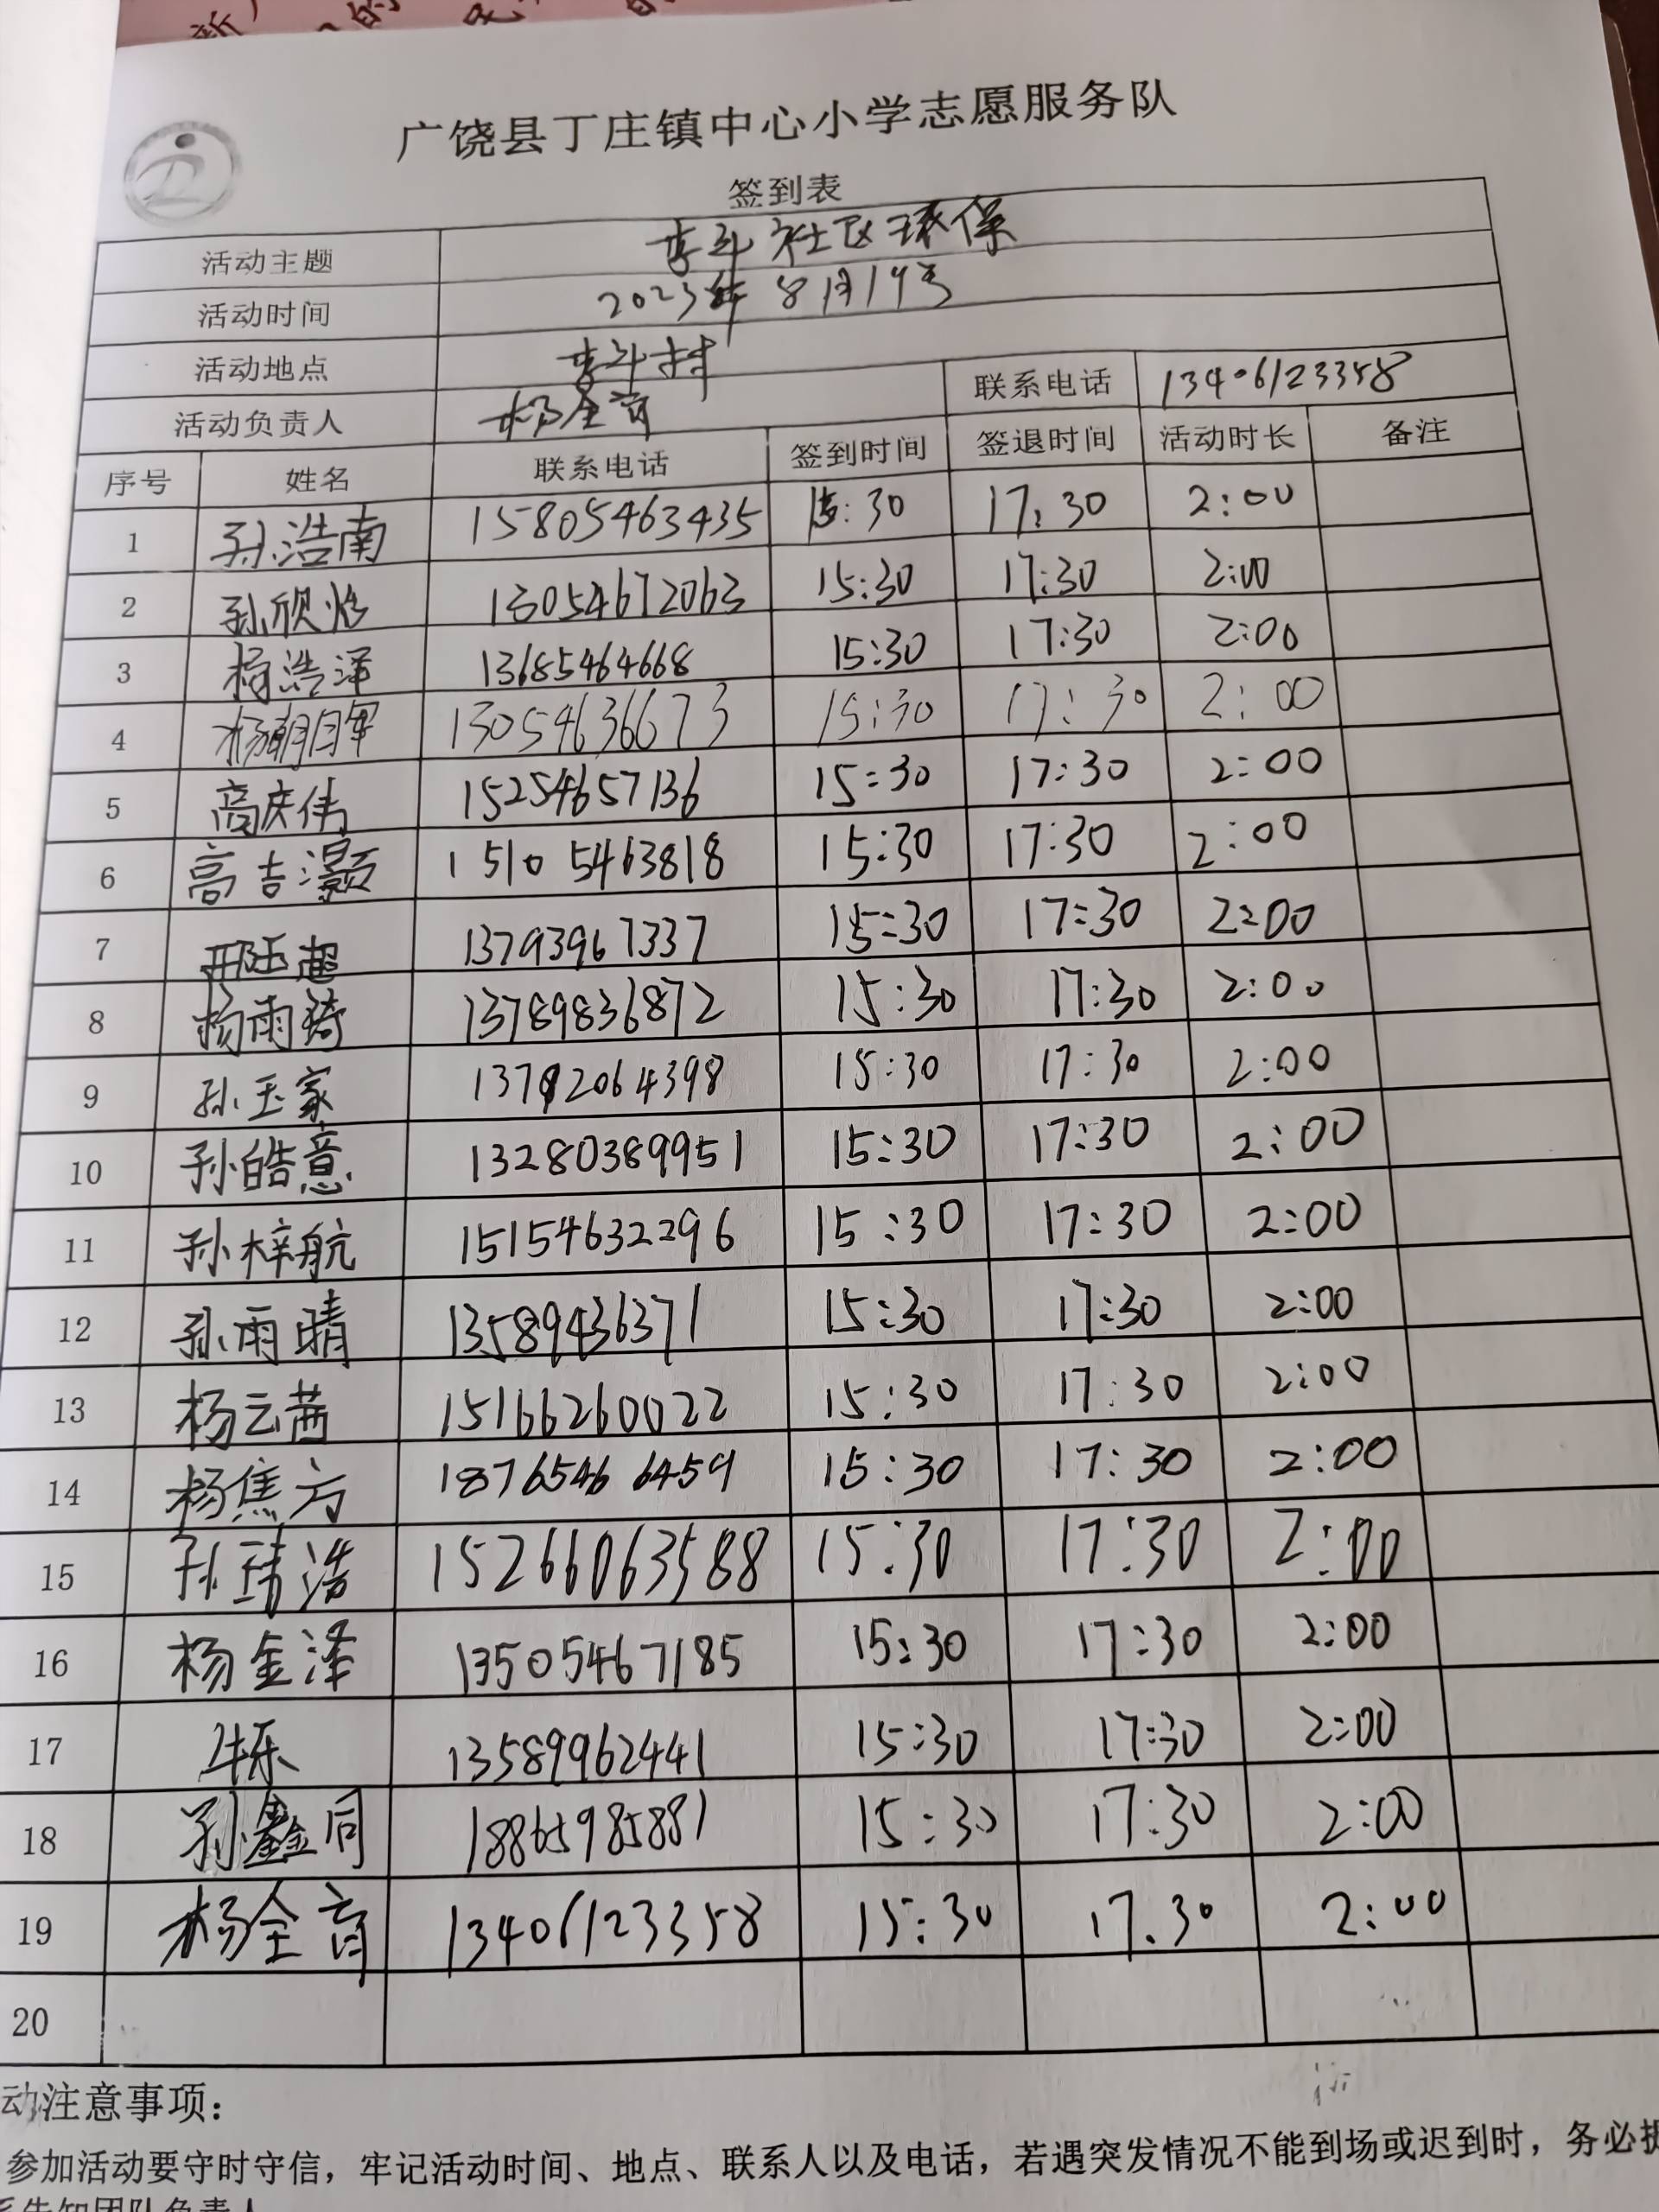 广饶县丁庄镇中心小学志愿服务队
签到表
活动主题 李斗社区环保
活动时间 2023年8月19号
活动地点 李斗村
活动负责人 杨全育 联系电话 13406123358
序号 姓名 联系电话 签到时间 签退时间 活动时长 备注
1 孙浩南 15805463435 15:30 17:30 2:00
2 孙欣怡 13054672063 15:30 17:30 2:00
3 杨浩泽 13685464668 15:30 17:30 2:00
4 杨朝军 13054636673 15:30 17:30 2:00
5 高庆伟 15254657136 15:30 17:30 2:00
6 高吉灏 15105463818 15:30 17:30 2:00
7 超 13793967337 15:30 17:30 2:00
8 杨雨琦 13789836872 15:30 17:30 2:00
9 孙玉家 15:30 17:30 2:00
10 孙皓意 13280389951 15:30 17:30 2:00
11 孙梓航 15154632296 15:30 17:30 2:00
12 孙雨晴 13589436371 15:30 17:30 2:00
13 杨云茜 15166260022 15:30 17:30 2:00
14 杨焦方 18765466459 15:30 17:30 2:00
15 孙玮浩 15266063588 15:30 17:30 2:00
16 杨金泽 13505467185 15:30 17:30 2:00
17 13589962441 15:30 17:30 2:00
18 孙鑫同 18865985881 15:30 17:30 2:00
19 杨全育 13406123358 15:30 17.30 2:00
20
动注意事项：
参加活动要守时守信，牢记活动时间、地点、联系人以及电话，若遇突发情况不能到场或迟到时，务必提
告知团队负责人